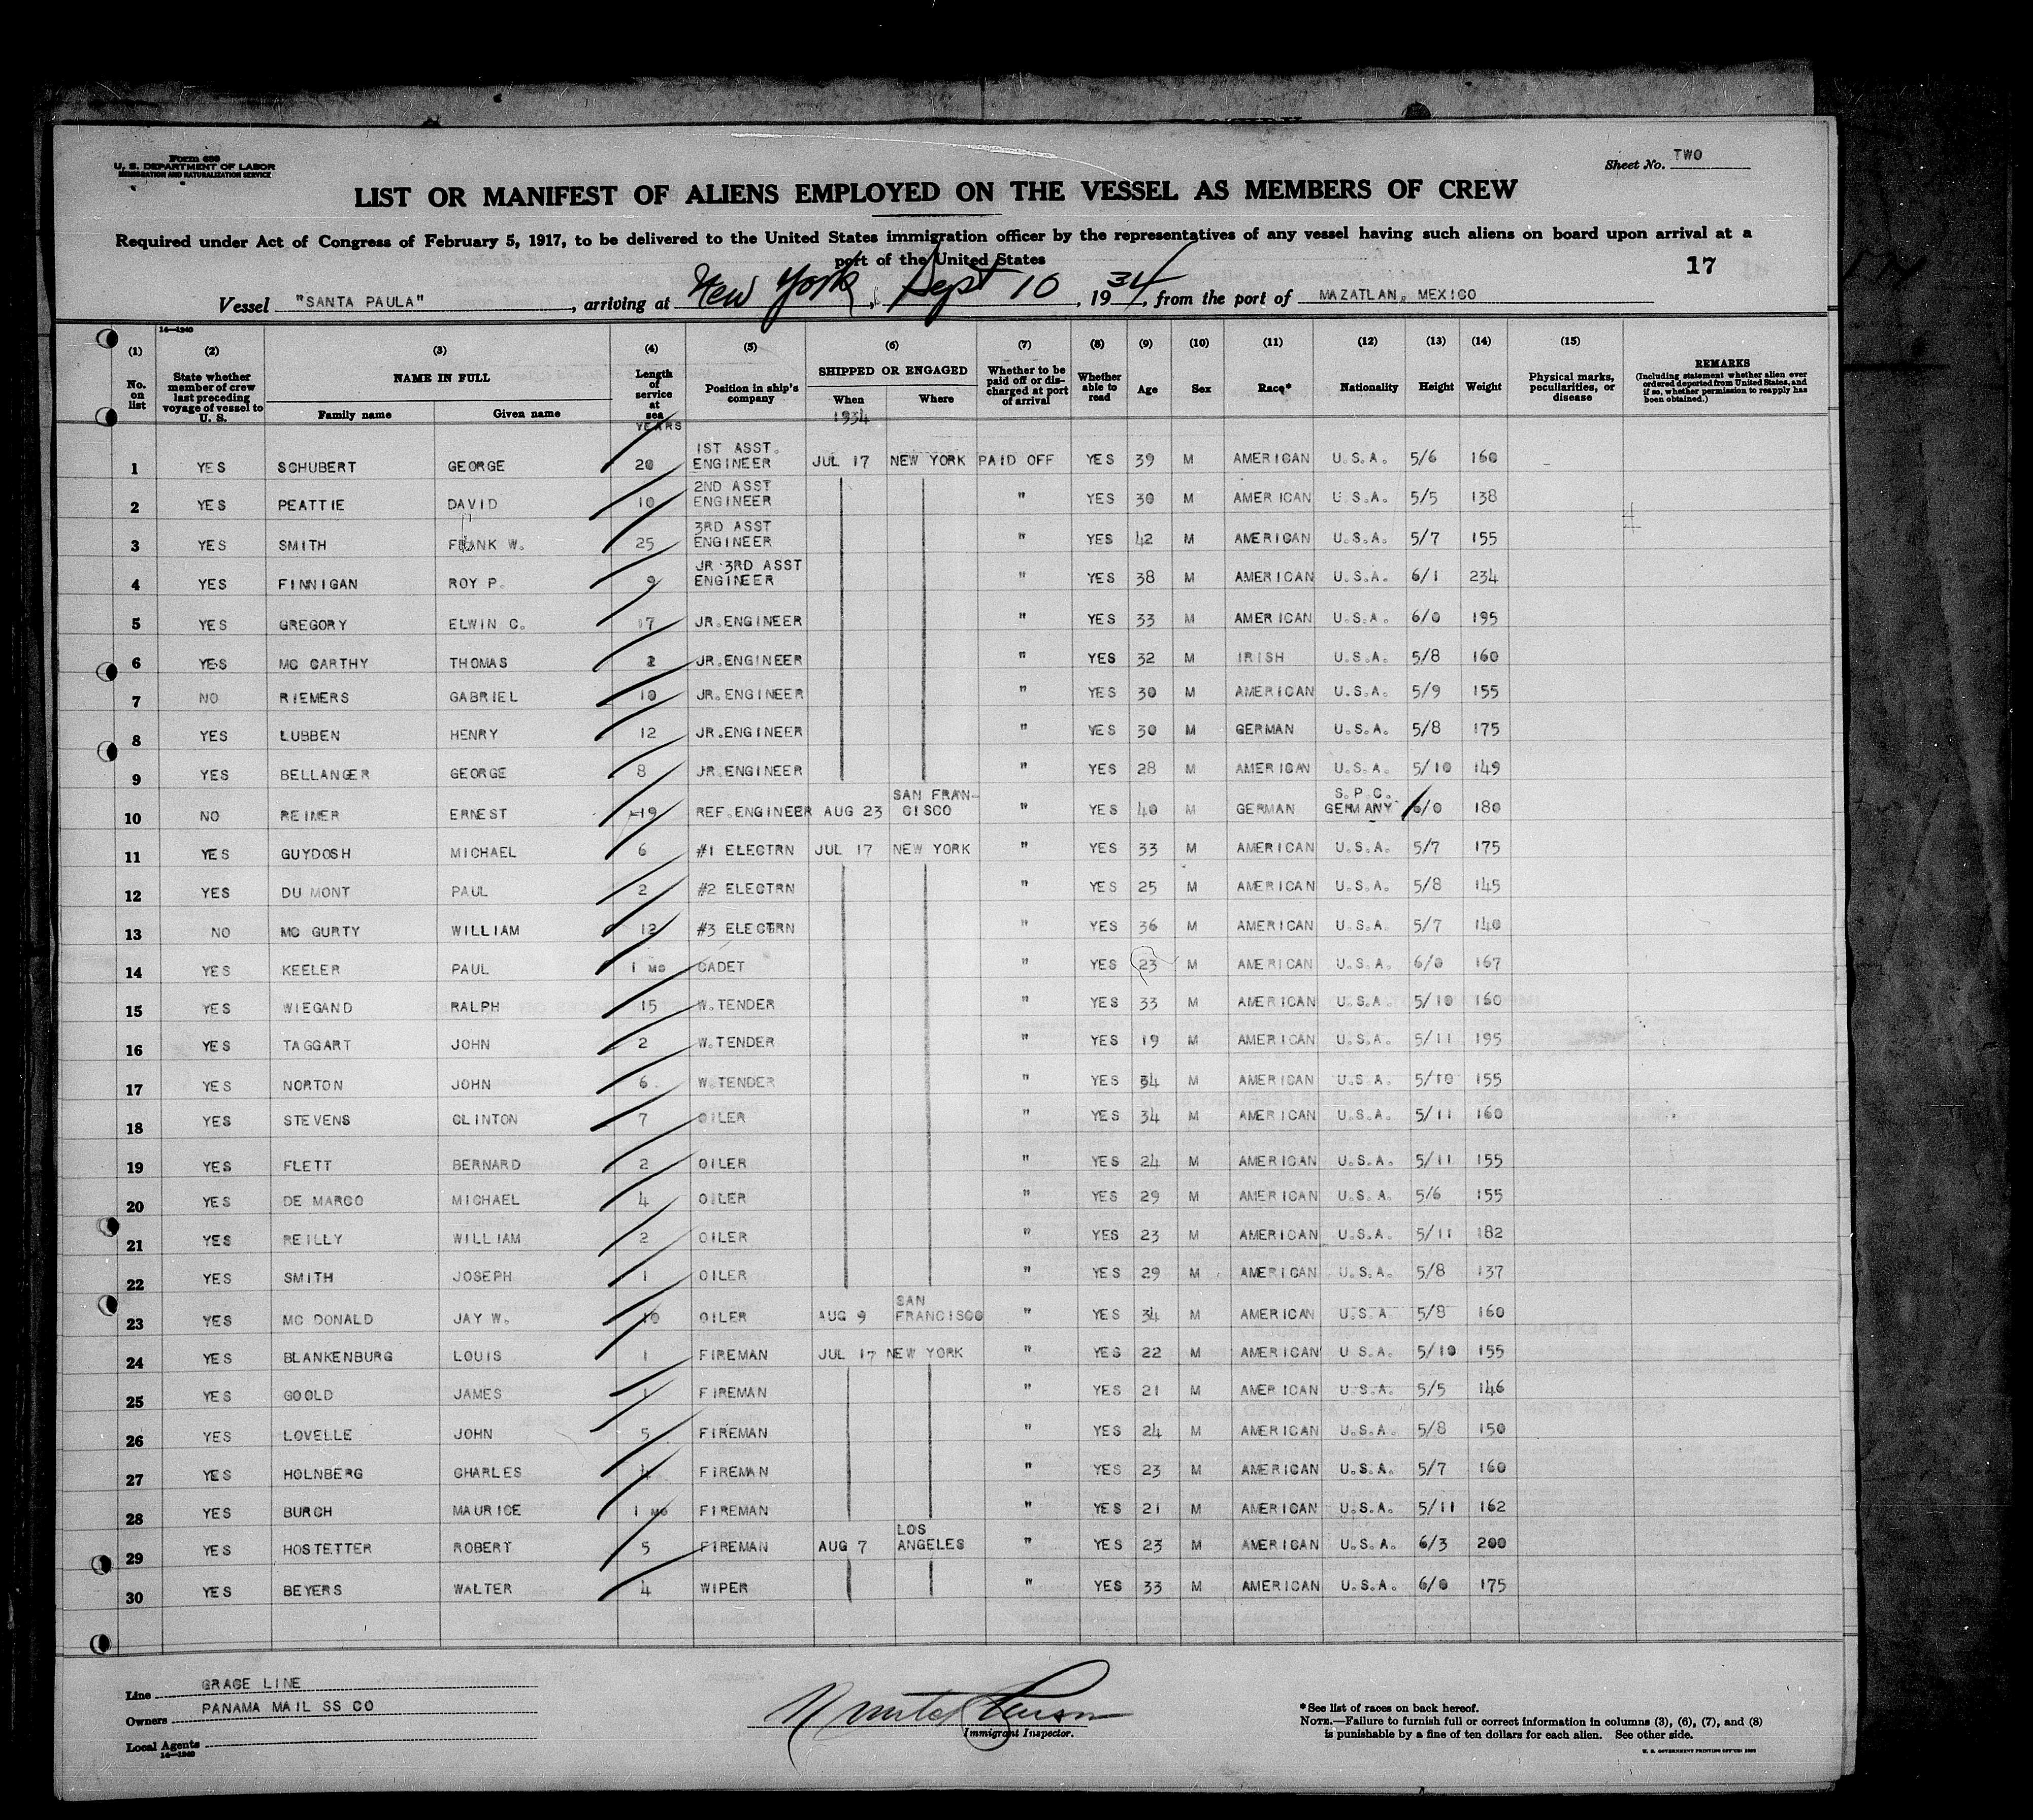 Form 680
U. S. DEPARTMENT OF LABOR
IMMIGRATION AND NATURALIZATION SERVICE
Sheet No. TWO
LIST OR MANIFEST OF ALIENS EMPLOYED ON THE VESSEL AS MEMBERS OF CREW
Required under Act of Congress of February 5, 1917, to be delivered to the United States immigration officer by the representatives of any vessel having such aliens on board upon arrival at a
port of the United States
17
Vessel "SANTA PAULA", arriving at New York, Sept 10, 1934, from the port of MAZATLAN, MEXICO
14—1240
(1) (2) (3) (4) (5) (6) (7) (8) (9) (10) (11) (12) (13) (14) (15)
No. on list State whether member of crew last preceding voyage of vessel to U. S. NAME IN FULL Family name Given name Length of service at sea Position in ship's company SHIPPED OR ENGAGED When Where Whether to be paid off or discharged at port of arrival Whether able to read Age Sex Race* Nationality Height Weight Physical marks, peculiarities, or disease REMARKS (Including statement whether alien ever ordered deported from United States, and if so, whether permission to reapply has been obtained.)
YEARS 1934
1 YES SCHUBERT GEORGE 20 1ST ASST. ENGINEER JUL 17 NEW YORK PAID OFF YES 39 M AMERICAN U.S.A. 5/6 160
2 YES PEATTIE DAVID 10 2ND ASST ENGINEER " YES 30 M AMERICAN U.S.A. 5/5 138
3 YES SMITH FRANK W. 25 3RD ASST ENGINEER " YES 42 M AMERICAN U.S.A. 5/7 155
4 YES FINNIGAN ROY P. 9 JR 3RD ASST ENGINEER " YES 38 M AMERICAN U.S.A. 6/1 234
5 YES GREGORY ELWIN C. 17 JR.ENGINEER " YES 33 M AMERICAN U.S.A. 6/0 195
6 YES MC CARTHY THOMAS 2 JR.ENGINEER " YES 32 M IRISH U.S.A. 5/8 160
7 NO RIEMERS GABRIEL 10 JR.ENGINEER " YES 30 M AMERICAN U.S.A. 5/9 155
8 YES LUBBEN HENRY 12 JR.ENGINEER " YES 30 M GERMAN U.S.A. 5/8 175
9 YES BELLANGER GEORGE 8 JR.ENGINEER " YES 28 M AMERICAN U.S.A. 5/10 149
10 NO REIMER ERNEST 19 REF.ENGINEER AUG 23 SAN FRAN-CISCO " YES 40 M GERMAN S.P.C. GERMANY 6/0 180
11 YES GUYDOSH MICHAEL 6 #1 ELECTRN JUL 17 NEW YORK " YES 33 M AMERICAN U.S.A. 5/7 175
12 YES DU MONT PAUL 2 #2 ELECTRN " YES 25 M AMERICAN U.S.A. 5/8 145
13 NO MC GURTY WILLIAM 12 #3 ELECTRN " YES 36 M AMERICAN U.S.A. 5/7 140
14 YES KEELER PAUL 1 MO CADET " YES 23 M AMERICAN U.S.A. 6/0 167
15 YES WIEGAND RALPH 15 W.TENDER " YES 33 M AMERICAN U.S.A. 5/10 160
16 YES TAGGART JOHN 2 W.TENDER " YES 19 M AMERICAN U.S.A. 5/11 195
17 YES NORTON JOHN 6 W.TENDER " YES 34 M AMERICAN U.S.A. 5/10 155
18 YES STEVENS CLINTON 7 OILER " YES 34 M AMERICAN U.S.A. 5/11 160
19 YES FLETT BERNARD 2 OILER " YES 24 M AMERICAN U.S.A. 5/11 155
20 YES DE MARCO MICHAEL 4 OILER " YES 29 M AMERICAN U.S.A. 5/6 155
21 YES REILLY WILLIAM 2 OILER " YES 23 M AMERICAN U.S.A. 5/11 182
22 YES SMITH JOSEPH 1 OILER " YES 29 M AMERICAN U.S.A. 5/8 137
23 YES MC DONALD JAY W. 10 OILER AUG 9 SAN FRANCISCO " YES 34 M AMERICAN U.S.A 5/8 160
24 YES BLANKENBURG LOUIS 1 FIREMAN JUL 17 NEW YORK " YES 22 M AMERICAN U S.A. 5/10 155
25 YES GOOLD JAMES 1 FIREMAN " YES 21 M AMERICAN U.S.A. 5/5 146
26 YES LOVELLE JOHN 5 FIREMAN " YES 24 M AMERICAN U.S.A. 5/8 150
27 YES HOLNBERG CHARLES 4 FIREMAN " YES 23 M AMERICAN U.S.A. 5/7 160
28 YES BURCH MAURICE 1 MO FIREMAN " YES 21 M AMERICAN U.S.A. 5/11 162
29 YES HOSTETTER ROBERT 5 FIREMAN AUG 7 LOS ANGELES " YES 23 M AMERICAN U.S.A. 6/3 200
30 YES BEYERS WALTER 4 WIPER " YES 33 M AMERICAN U.S.A. 6/0 175
Line GRACE LINE
Owners PANAMA MAIL SS CO
Local Agents
14—1240
Immigrant Inspector.
*See list of races on back hereof.
NOTE.—Failure to furnish full or correct information in columns (3), (6), (7), and (8)
is punishable by a fine of ten dollars for each alien. See other side.
U. S. GOVERNMENT PRINTING OFFICE